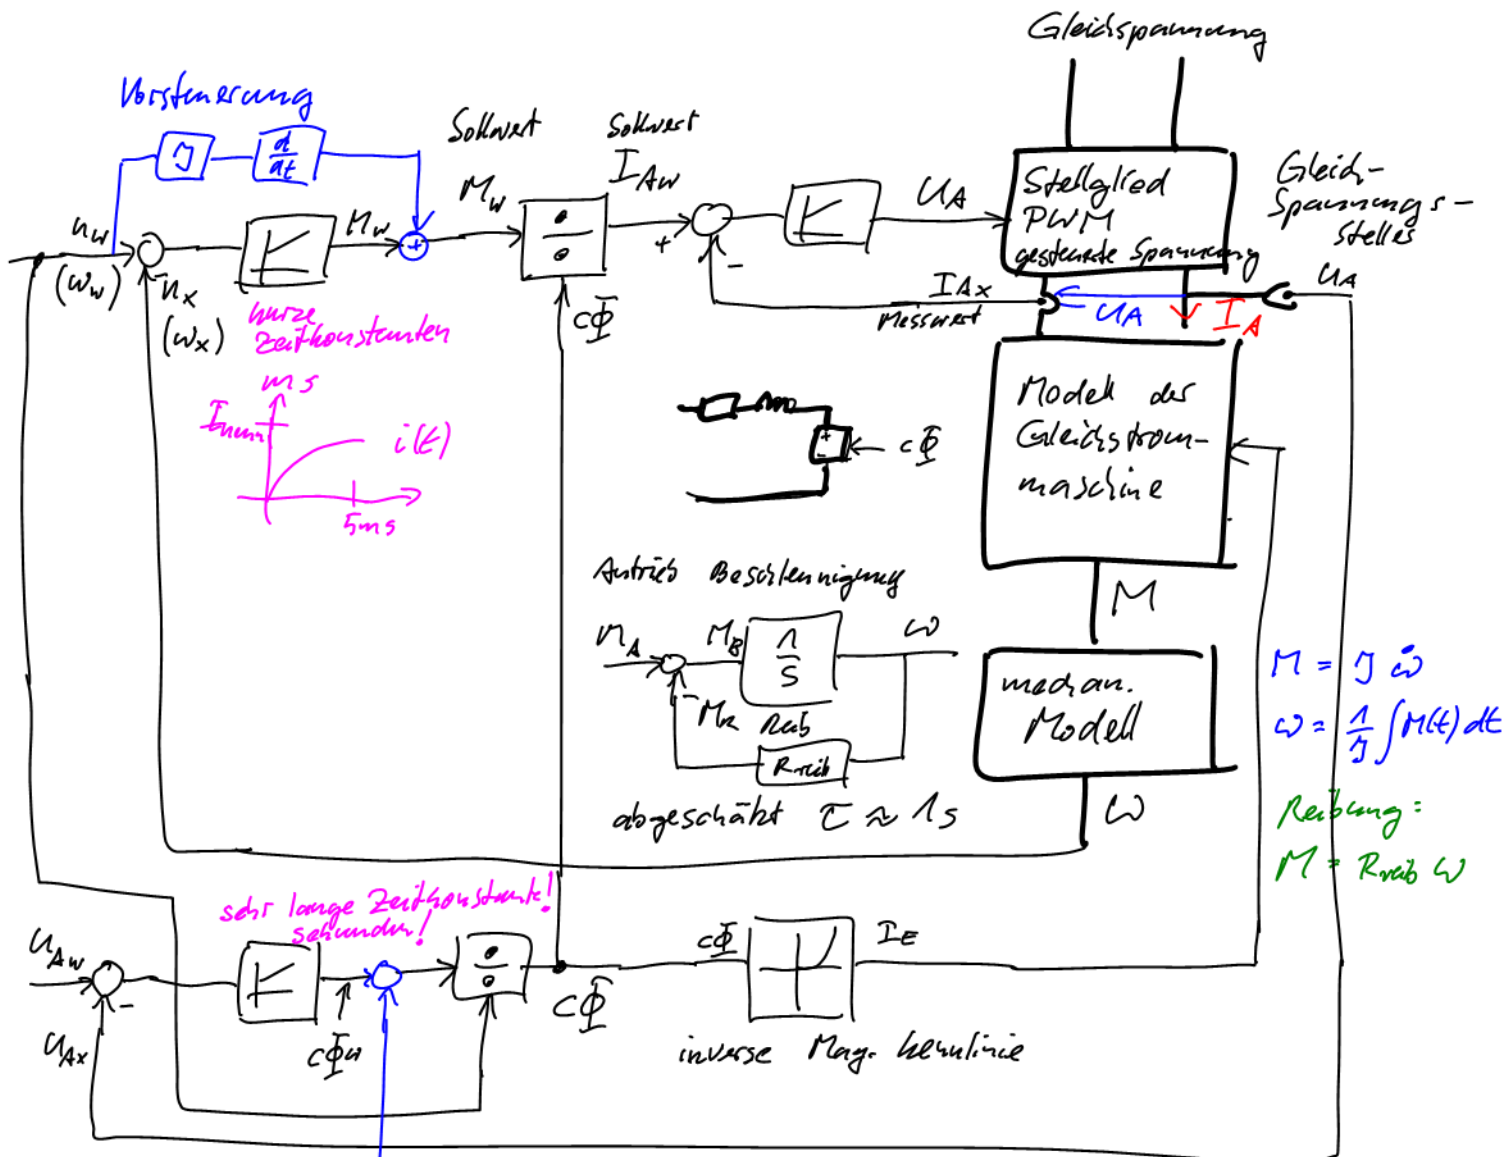 Gleichspannung
Vorsteuerung
J
d/dt
Sollwert
Sollwert
I_Aw
n_w
(ω_w)
M_w
M_w
÷
+
-
U_A
Stellglied
PWM
gesteuerte Spannung
Gleich-
Spannungs-
Stelles
U_A
- n_x
(ω_x)
kurze
Zeitkonstanten
ms
I_nenn
i(t)
5ms
cΦ
I_Ax
Messwert
U_A
I_A
+
-
cΦ
Modell der
Gleichstrom-
maschine
M
Antrieb Beschleunigung
M_A
M_B
1/s
ω
- M_R Reib
R_reib
abgeschäzt τ ≈ 1s
mechan.
Modell
ω
M = J ω̇
ω = 1/J ∫M(t) dt
Reibung:
M = R_reib ω
sehr lange Zeitkonstante!
sekunden!
U_Aw
-
U_Ax
cΦω
÷
cΦ
cΦ
I_E
inverse Mag. kennlinie